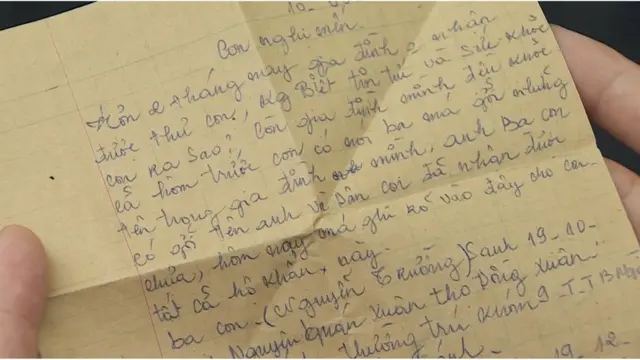 10-
Con nghi mến.
Hỏn 2 tháng nay gia đình o nhận
được thư con, kg Biết tin tức và Sức khỏe
con ra Sao? Còn gia đình mình đều khỏe
cả hôm trước con có nói ba má gởi những
tên trong gia đình mình, anh Ba con
có gởi tên anh và Dân coi đã nhận được
chưa, hôm nay má ghi rỏ vào đây cho con
tất cả hộ khẩu này.
ba con. (Nguyễn Trường) Sanh 19-10-
Nguyên quán Xuân thọ Đồng Xuân
thường trú xuống T.T B
19.12-